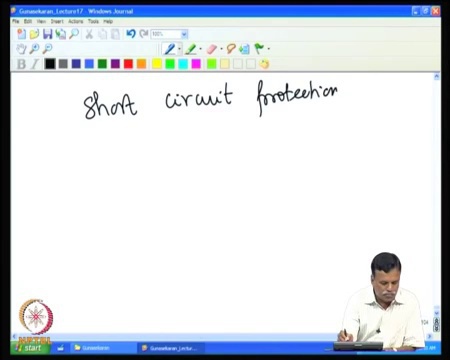 Gunasekaran_Lecture17 - Windows Journal
File Edit View Insert Actions Tools Help
100%
B I
Short circuit protection
NPTEL
start Gunasekaran Gunasekaran_Lectur...